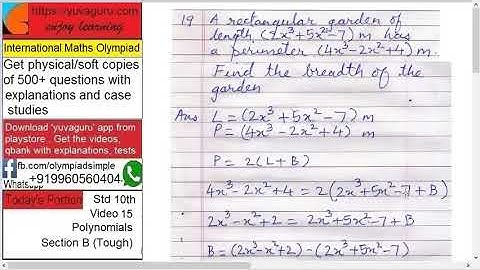 https://yuvaguru.com
enjoy learning
International Maths Olympiad
Get physical/soft copies
of 500+ questions with
explanations and case
studies
Download 'yuvaguru' app from
playstore . Get the videos,
qbank with explanations, tests
fb.com/olympiadsimple
+919960560404
Whatsapp
Today's Portion
Std 10th
Video 15
Polynomials
Section B (Tough)
19 A rectangular garden of
length (2x³+5x²-7) m has
a perimeter (4x³-2x²+4) m.
Find the breadth of the
garden
Ans L = (2x³+5x²-7) m
P = (4x³-2x²+4) m
P = 2(L+B)
4x³-2x²+4 = 2(2x³+5x²-7+B)
2x³-x²+2 = 2x³+5x²-7+B
B = (2x³-x²+2)-(2x³+5x²-7)